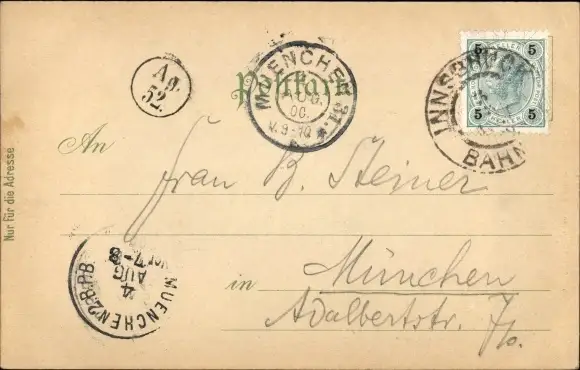 Postkarte
Ag.
52.
MUENCHEN 31.
AUG.
00.
V. 9-10
5 HELLER 5
5 HELLER 5
INNSBRUCK
BAHN
Nur für die Adresse
An
Frau B. Steiner
MUENCHEN 2.B.P.B.
4
AUG
7-8
in
München
Adalbertstr.